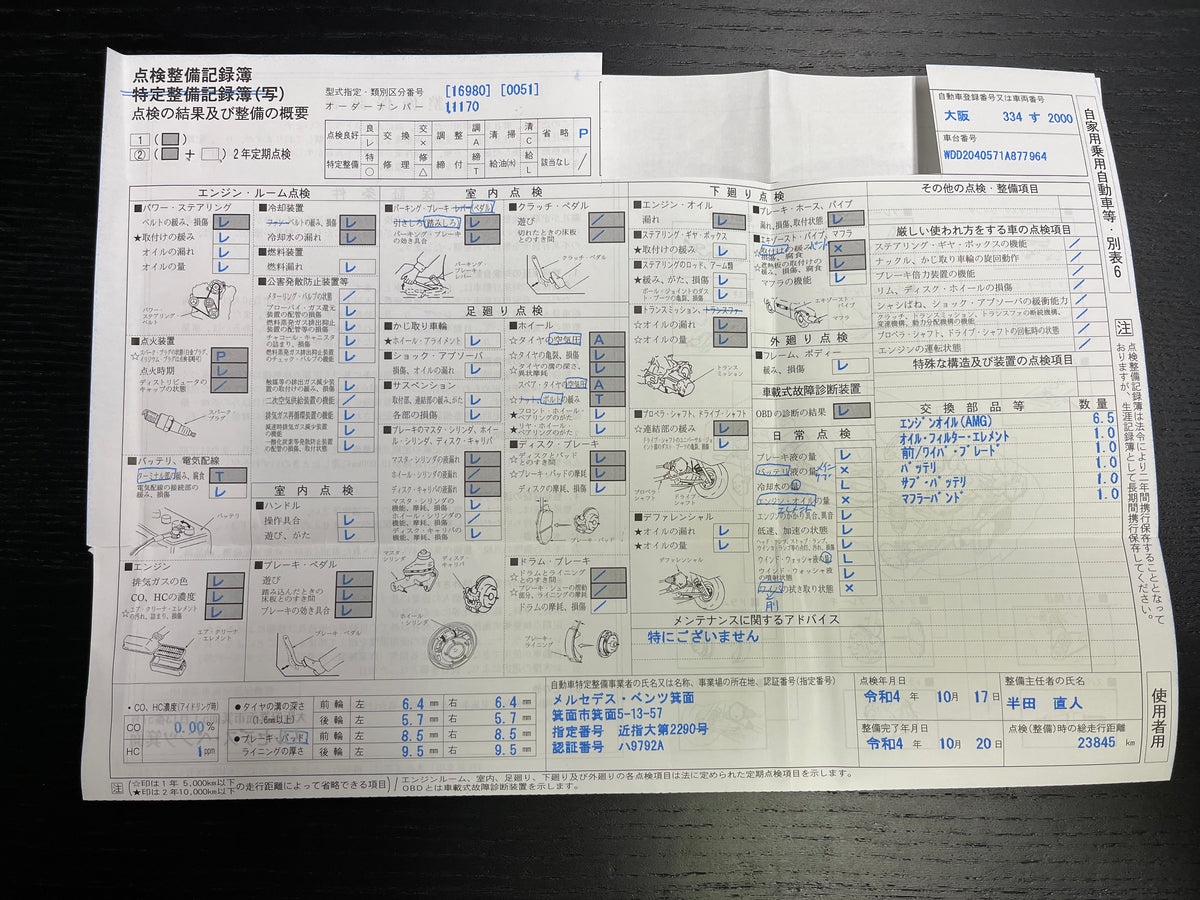 点検整備記録簿
特定整備記録簿(写)
点検の結果及び整備の概要
型式指定・類別区分番号 [16980] [0051]
オーダーナンバー 11170
1 ( )
② ( + ) 2年定期点検
点検良好 良 レ 交換 交 × 調整 調 A 清掃 清 C 省略 P
特定整備 特 ○ 修理 修 △ 締付 締 T 給油(水) 給 L 該当なし /
自動車登録番号又は車両番号
大阪 334 す 2000
車台番号
WDD2040571A877964
自家用乗用自動車等・別表6
エンジン・ルーム点検
■パワー・ステアリング
ベルトの緩み、損傷 レ
★取付けの緩み レ
オイルの漏れ レ
オイルの量 レ
パワー・ステアリング・ベルト
■点火装置
☆スパーク・プラグの状態 P
点火時期
ディストリビュータのキャップの状態 /
スパーク・プラグ
■バッテリ、電気配線
ターミナル部の緩み、腐食 T
電気配線の接続部の緩み、損傷 レ
バッテリ
■エンジン
排気ガスの色 レ
CO、HCの濃度 レ
☆エア・クリーナ・エレメントの汚れ、詰まり、損傷 レ
エア・クリーナ・エレメント
■冷却装置
ファン・ベルトの緩み、損傷 レ
冷却水の漏れ レ
■燃料装置
燃料漏れ レ
■公害発散防止装置等
メターリング・バルブの状態 /
ブローバイ・ガス還元装置の配管の損傷 レ
燃料蒸発ガス排出抑止装置の配管等の損傷 レ
チャコール・キャニスタの詰まり、損傷 レ
燃料蒸発ガス排出抑止装置のチェック・バルブの機能 レ
触媒等の排出ガス減少装置の取付けの緩み、損傷 レ
二次空気供給装置の機能 /
排気ガス再循環装置の機能 レ
減速時排気ガス減少装置の機能 レ
一酸化炭素等発散防止装置の配管の損傷、取付状態 レ
室内点検
■ハンドル
操作具合 レ
遊び、がた レ
■ブレーキ・ペダル
遊び レ
踏み込んだときの床板とのすき間 レ
ブレーキの効き具合 レ
ブレーキ・ペダル
室内点検
■パーキング・ブレーキ・レバー(ペダル)
引きしろ(踏みしろ) レ
パーキング・ブレーキの効き具合 レ
パーキング・ブレーキ・レバー
■クラッチ・ペダル
遊び /
切れたときの床板とのすき間 /
クラッチ・ペダル
足廻り点検
■かじ取り車輪
★ホイール・アライメント レ
■ショック・アブソーバ
損傷、オイルの漏れ レ
■サスペンション
取付部、連結部の緩み、がた レ
各部の損傷 レ
■ブレーキのマスタ・シリンダ、ホイール・シリンダ、ディスク・キャリパ
マスタ・シリンダの液漏れ レ
ホイール・シリンダの液漏れ /
ディスク・キャリパの液漏れ レ
マスタ・シリンダの機能、摩耗、損傷 レ
ホイール・シリンダの機能、摩耗、損傷 /
ディスク・キャリパの機能、摩耗、損傷 レ
マスタ・シリンダ
ディスク・キャリパ
ホイール・シリンダ
■ホイール
☆タイヤの空気圧 A
☆タイヤの亀裂、損傷 レ
☆タイヤの溝の深さ、異状摩耗 レ
スペア・タイヤの空気圧 A
☆ナット、ボルトの緩み T
★フロント・ホイール・ベアリングのがた レ
★リヤ・ホイール・ベアリングのがた レ
■ディスク・ブレーキ
☆ディスクとパッドとのすき間 レ
☆ブレーキ・パッドの摩耗 レ
ディスクの摩耗、損傷 レ
ブレーキ・パッド
■ドラム・ブレーキ
☆ドラムとライニングとのすき間 /
☆ブレーキ・シューの摺動部分、ライニングの摩耗 /
ドラムの摩耗、損傷 /
ブレーキ・ライニング
下廻り点検
■エンジン・オイル
漏れ レ
■ステアリング・ギヤ・ボックス
★取付けの緩み レ
■ステアリングのロッド、アーム類
★緩み、がた、損傷 レ
ボール・ジョイントのダスト・ブーツの亀裂、損傷 レ
■トランスミッション、トランスファ
☆オイルの漏れ レ
☆オイルの量 レ
トランスミッション
■プロペラ・シャフト、ドライブ・シャフト
☆連結部の緩み レ
ドライブ・シャフトのユニバーサル・ジョイント部のダスト・ブーツの亀裂、損傷 レ
プロペラ・シャフト
ドライブ・シャフト
■デファレンシャル
★オイルの漏れ レ
★オイルの量 レ
デファレンシャル
■ブレーキ・ホース、パイプ
漏れ、損傷、取付状態 レ
■エキゾースト・パイプ、マフラ
☆取付けの緩み、損傷、腐食 バンド ×
☆遮熱板の取付けの緩み、損傷、腐食 レ
マフラの機能 レ
エキゾースト・パイプ
マフラ
外廻り点検
■フレーム、ボディー
緩み、損傷 レ
車載式故障診断装置
OBDの診断の結果 レ
日常点検
ブレーキ液の量 レ
バッテリ液の量 メイン サブ ×
冷却水の量 L
エンジン・オイルの量 エレメント ×
エンジンのかかり具合、異音 レ
低速、加速の状態 レ
ヘッド・ランプ、ストップ・ランプ、ウインカ・ランプ等の点灯、汚れ、損傷 レ
ウインド・ウォッシャ液の量 L
ウインド・ウォッシャ液の噴射状態 レ
ワイパの拭き取り状態 ×
前
メンテナンスに関するアドバイス
特にございません
その他の点検・整備項目
厳しい使われ方をする車の点検項目
ステアリング・ギヤ・ボックスの機能 /
ナックル、かじ取り車輪の旋回動作 /
ブレーキ倍力装置の機能 /
リム、ディスク・ホイールの損傷 /
シャシばね、ショック・アブソーバの緩衝能力 /
クラッチ、トランスミッション、トランスファの断続機構、変速機構、動力分配機構の機能 /
プロペラ・シャフト、ドライブ・シャフトの回転時の状態 /
エンジンの運転状態 /
特殊な構造及び装置の点検項目
交換部品等 数量
エンジンオイル(AMG) 6.5
オイル・フィルター・エレメント 1.0
前/ワイパ・ブレード 1.0
バッテリ 1.0
サブ・バッテリ 1.0
マフラーバンド 1.0
注 点検整備記録簿は法令により二年間携行保存することとなっておりますが、生涯記録簿として長期間携行保存してください。
●CO、HC濃度(アイドリング時)
CO 0.00 %
HC 1 ppm
●タイヤの溝の深さ(1.6mm以上)
前輪 左 6.4 mm 右 6.4 mm
後輪 左 5.7 mm 右 5.7 mm
●ブレーキ・パッド、ライニングの厚さ
前輪 左 8.5 mm 右 8.5 mm
後輪 左 9.5 mm 右 9.5 mm
自動車特定整備事業者の氏名又は名称、事業場の所在地、認証番号(指定番号)
メルセデス・ベンツ箕面
箕面市箕面5-13-57
指定番号 近指大第2290号
認証番号 ハ9792A
点検年月日
令和4 年 10月 17日
整備完了年月日
令和4 年 10月 20日
整備主任者の氏名
半田 直人
点検(整備)時の総走行距離
23845 km
使用者用
注 (☆印は1年 5,000km以下 ★印は2年10,000km以下 の走行距離によって省略できる項目)
エンジンルーム、室内、足廻り、下廻り及び外廻りの各点検項目は法に定められた定期点検項目を示します。
OBDとは車載式故障診断装置を示します。